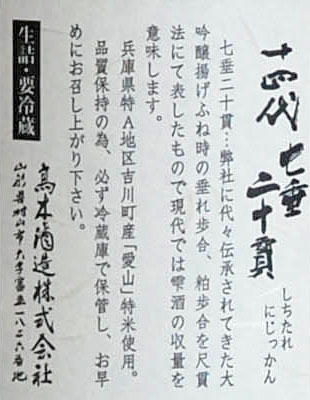 十四代 七垂二十貫
しちたれ
にじっかん
七垂二十貫…弊社に代々伝承されてきた大
吟醸揚げふね時の垂れ歩合、粕歩合を尺貫
法にて表したもので現代では雫酒の収量を
意味します。
兵庫県特A地区吉川町産「愛山」特米使用。
品質保持の為、必ず冷蔵庫で保管し、お早
めにお召し上がり下さい。
生詰・要冷蔵
高木酒造株式会社
山形県村山市大字富並一八二六番地